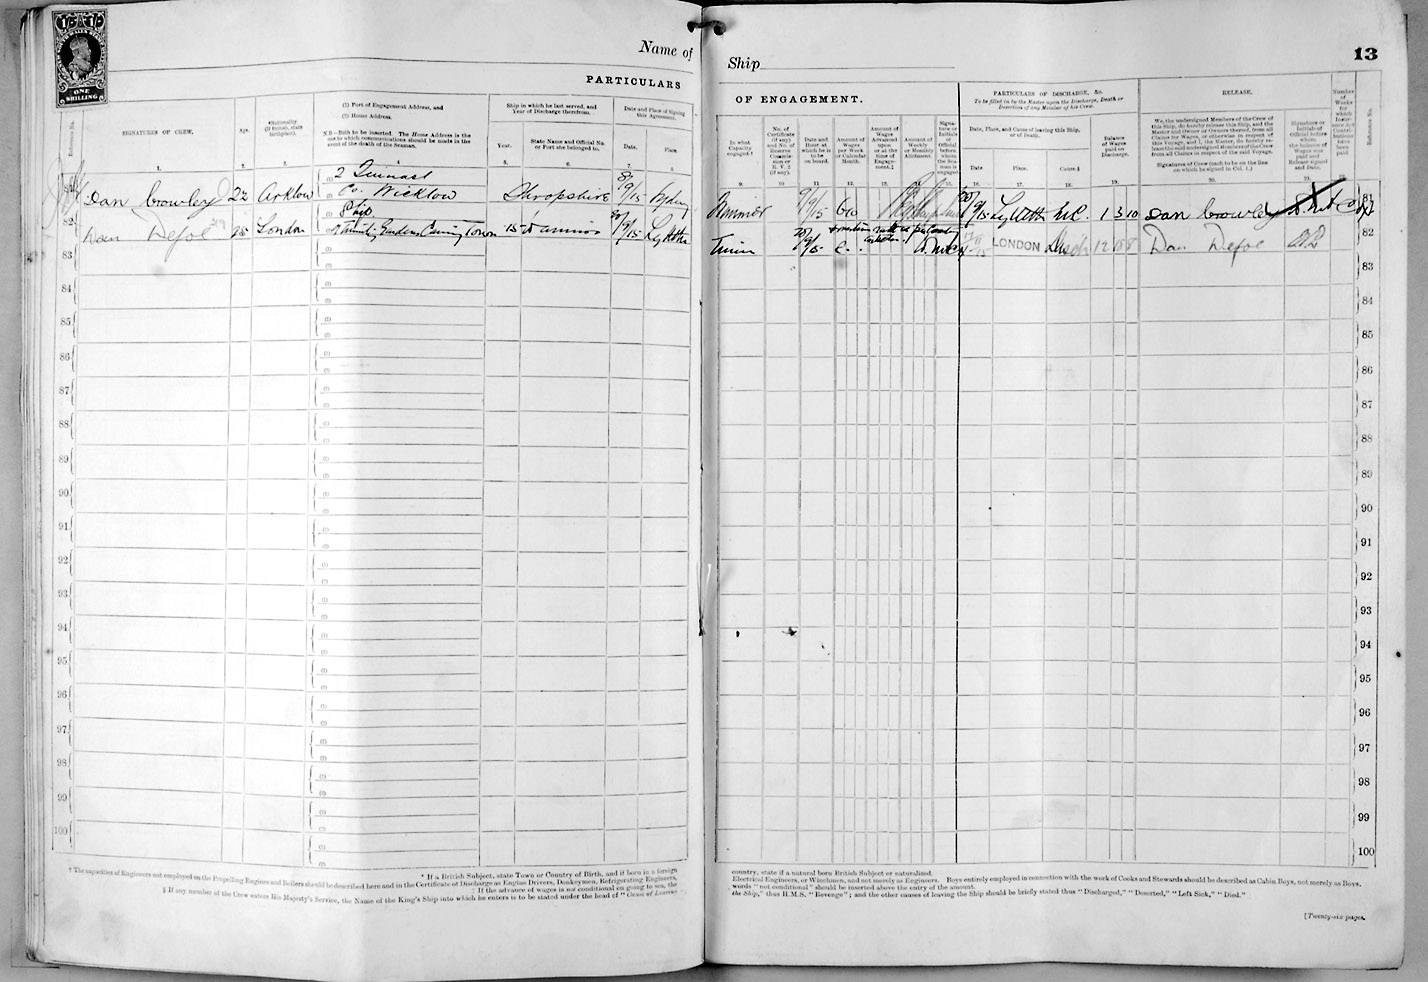 ONE
SHILLING
Name of
PARTICULARS
Reference No.
SIGNATURES OF CREW.
Age.
*Nationality
(If British, state
birthplace).
(1) Port of Engagement Address, and
(2) Home Address.
N.B.—Both to be inserted. The Home Address is the
one to which communications should be made in the
event of the death of the Seaman.
Ship in which he last served, and
Year of Discharge therefrom.
Year.
State Name and Official No.
or Port she belonged to.
Date and Place of Signing
this Agreement.
Date.
Place.
1. 2. 3. 5. 6. 7. 8.
Dan Crowley 22 Arklow
Co. Wicklow Shropshire 9/15 Sydney
82 Dan Defoe 25 London
Ship
15 9/15 Lyttelton
83
84
85
86
87
88
89
90
91
92
93
94
95
96
97
98
99
100
* If a British Subject, state Town or Country of Birth, and if born in a foreign
† The capacities of Engineers not employed on the Propelling Engines and Boilers should be described here and in the Certificate of Discharge as Engine Drivers, Donkeymen, Refrigerating Engineers,
‡ If the advance of wages is not conditional on going to sea, the
§ If any member of the Crew enters His Majesty's Service, the Name of the King's Ship into which he enters is to be stated under the head of "Cause of Leaving
Ship
13
OF ENGAGEMENT.
PARTICULARS OF DISCHARGE, &c.
To be filled in by the Master upon the Discharge, Death or
Desertion of any Member of his Crew.
RELEASE.
In what
Capacity
engaged †
No. of
Certificate
(if any)
and No. of
Reserve
Commis-
sion or
R. V. 2
(if any).
Date and
Hour at
which he is
to be
on board
Amount of
Wages
per Week
or Calendar
Month.
Amount of
Wages
Advanced
upon
or at the
time of
Engage-
ment.‡
Amount of
Weekly
or Monthly
Allotment.
Signa-
ture or
Initials
of
Official
before
whom
the Sea-
man is
engaged
Date, Place, and Cause of leaving this Ship,
or of Death.
Date
Place.
Cause.§
Balance
of Wages
paid on
Discharge.
We, the undersigned Members of the Crew of
this Ship, do hereby release this Ship, and the
Master and Owner or Owners thereof, from all
Claims for Wages, or otherwise in respect of
this Voyage, and I, the Master, do hereby re-
lease the said undersigned Members of the Crew
from all Claims in respect of the said Voyage.
Signatures of Crew (each to be on the line
on which he signed in Col. 1.)
Signature or
Initials of
Official before
whom
the balance of
Wages was
paid and
Release signed
and Date.
Number
of
Weeks
for
which
Reference No.
9. 10. 11. 12. 13. 14. 15. 16. 17. 18. 19. 20. 21. 22.
Trimmer 9/15 9/15 Lyttelton 1 3 10 Dan Crowley 81
9/15 LONDON Disch 12 Dan Defoe 82
83
84
85
86
87
88
89
90
91
92
93
94
95
96
97
98
99
100
country, state if a natural born British Subject or naturalized.
Electrical Engineers, or Winchmen, and not merely as Engineers. Boys entirely employed in connection with the work of Cooks and Stewards should be described as Cabin Boys, not merely as Boys.
words "not conditional" should be inserted above the entry of the amount.
the Ship," thus H.M.S. "Revenge"; and the other causes of leaving the Ship should be briefly stated thus "Discharged," "Deserted," "Left Sick," "Died."
[Twenty-six pages.